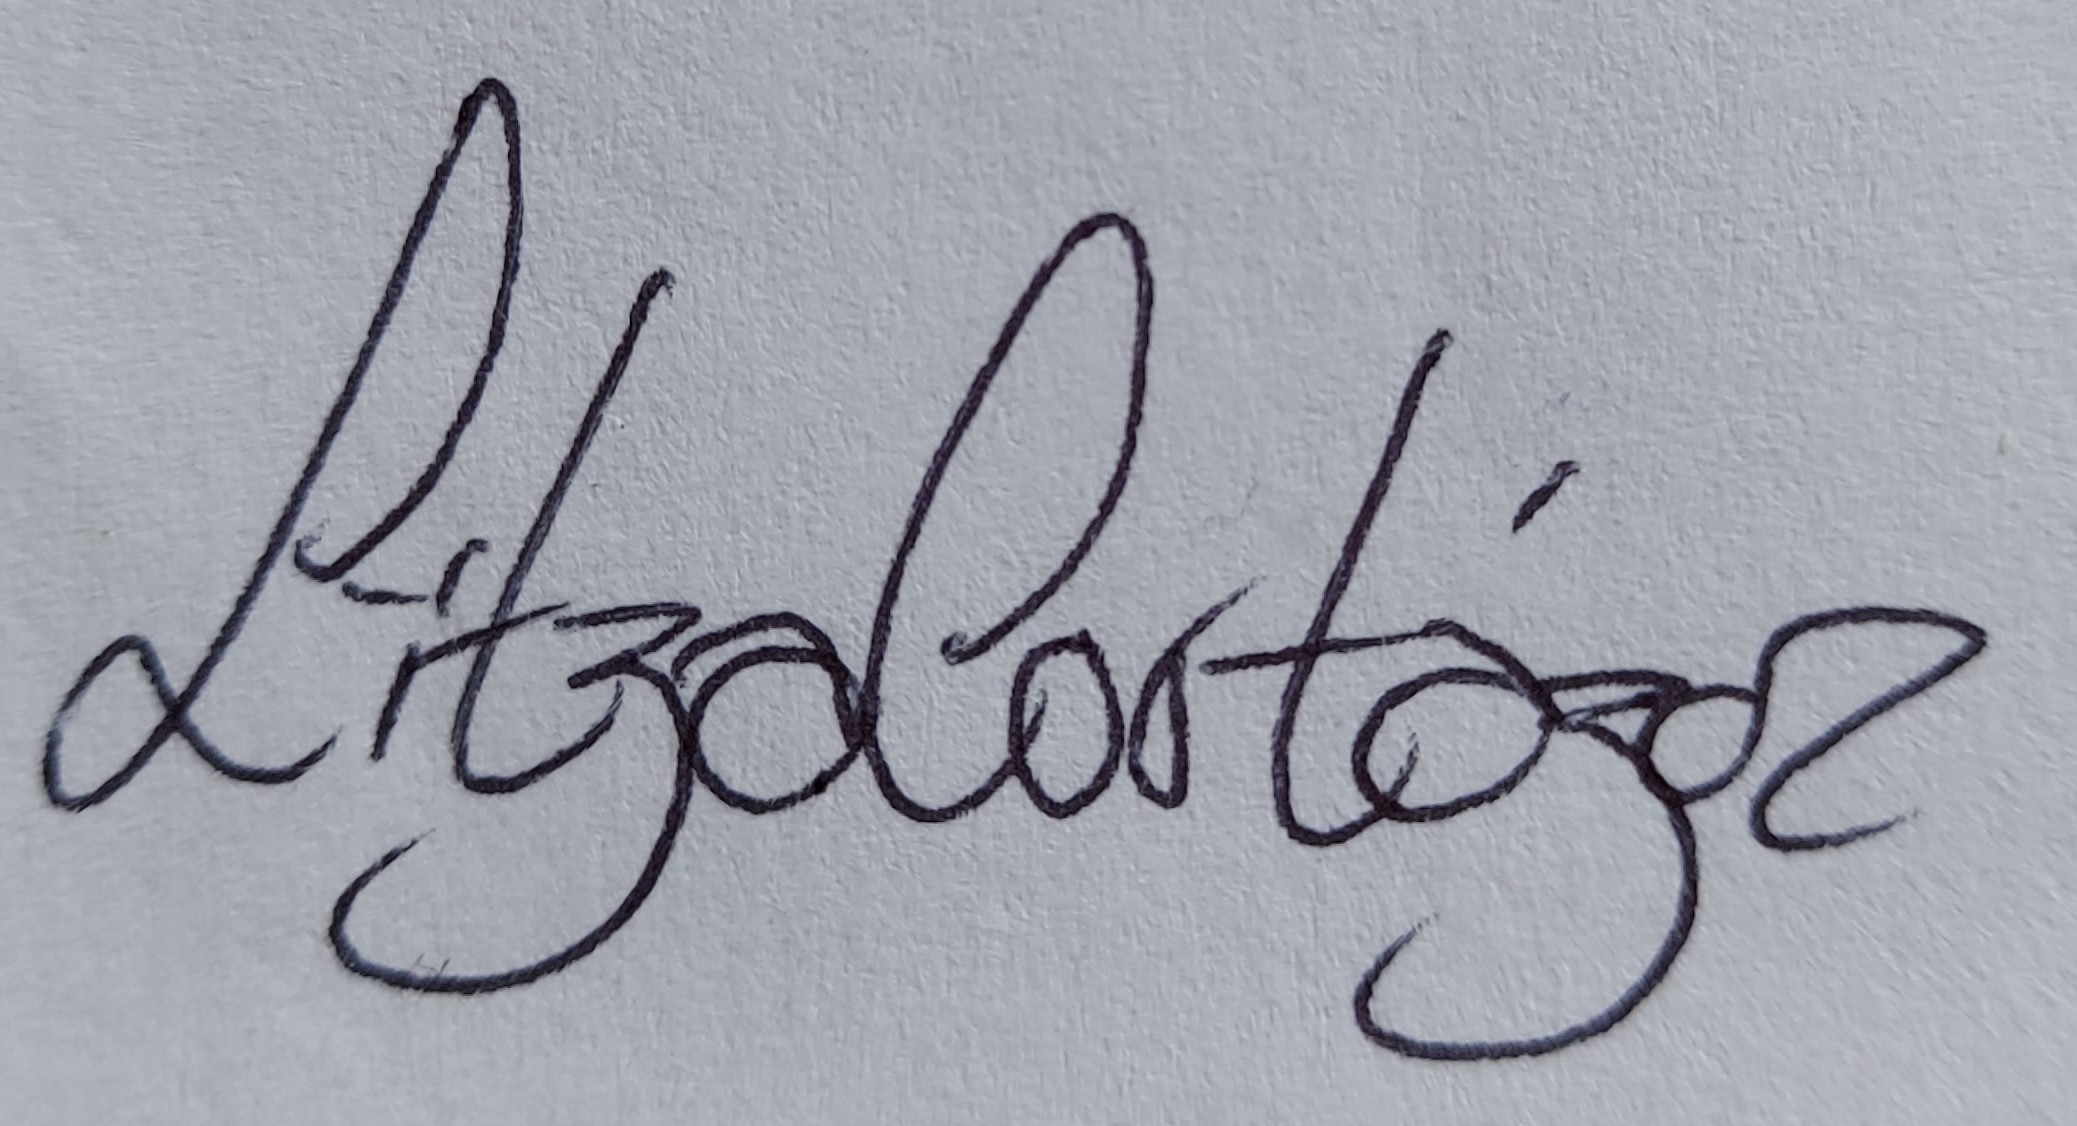 Litza Cortázar